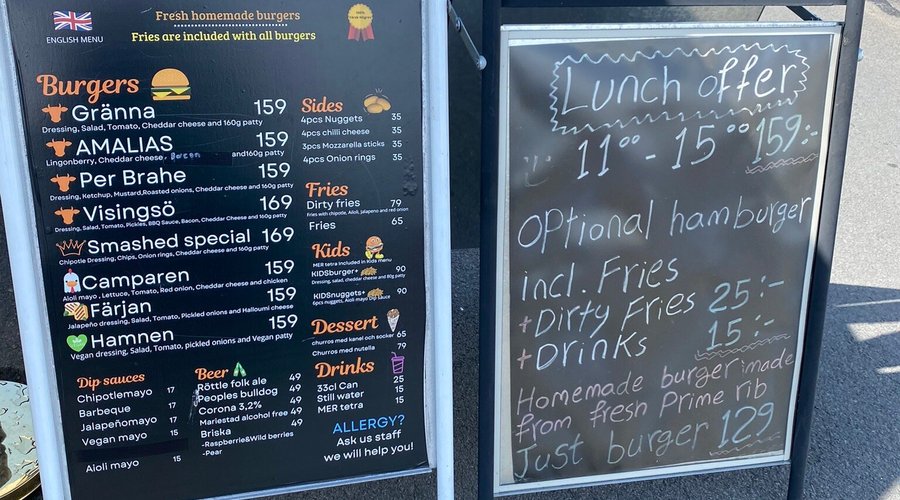 ENGLISH MENU
Fresh homemade burgers
Fries are included with all burgers
Burgers
Gränna 159
Dressing, Salad, Tomato, Cheddar cheese and 160g patty
AMALIAS 159
Lingonberry, Cheddar cheese, Bacon and160g patty
Per Brahe 159
Dressing, Ketchup, Mustard,Roasted onions, Cheddar cheese and 160g patty
Visingsö 169
Dressing, Salad, Tomato, Pickles, BBQ Sauce, Bacon, Cheddar Cheese and 160g patty
Smashed special 169
Chipotle Dressing, Chips, Onion rings, Cheddar cheese and 160g patty
Camparen 159
Aioli mayo , Lettuce, Tomato, Red onion, Cheddar cheese and chicken
Färjan 159
Jalapeño dressing, Salad, Tomato, Pickled onions and Halloumi cheese
Hamnen 159
Vegan dressing, Salad, Tomato, pickled onions and Vegan patty
Dip sauces
Chipotlemayo 17
Barbeque 17
Jalapeñomayo 17
Vegan mayo 15
Aioli mayo 15
Beer
Röttle folk ale 49
Peoples bulldog 49
Corona 3,2% 49
Mariestad alcohol free 49
Briska 49
-Raspberrie&Wild berries
-Pear
Sides
4pcs Nuggets 35
4pcs chilli cheese 35
3pcs Mozzarella sticks 35
4pcs Onion rings 35
Fries
Dirty fries 79
Fries with chipotle, Aioli, jalapeno and red onion
Fries 65
Kids
MER tetra included in Kids menu
KIDSburger+ 90
Dressing, salad, cheddar cheese and 80g patty
KIDSnuggets+ 90
6pcs nuggets, Aioli mayo Dip Sauce
Dessert
Churros med kanel och socker 65
Churros med nutella 79
Drinks
33cl Can 25
Still water 15
MER tetra 15
ALLERGY?
Ask us staff
we will help you!
Lunch offer
11⁰⁰ - 15⁰⁰ 159:-
Optional hamburger
incl. Fries
+Dirty Fries 25:-
+Drinks 15:-
Homemade burger made
from fresh Prime rib
Just burger 129